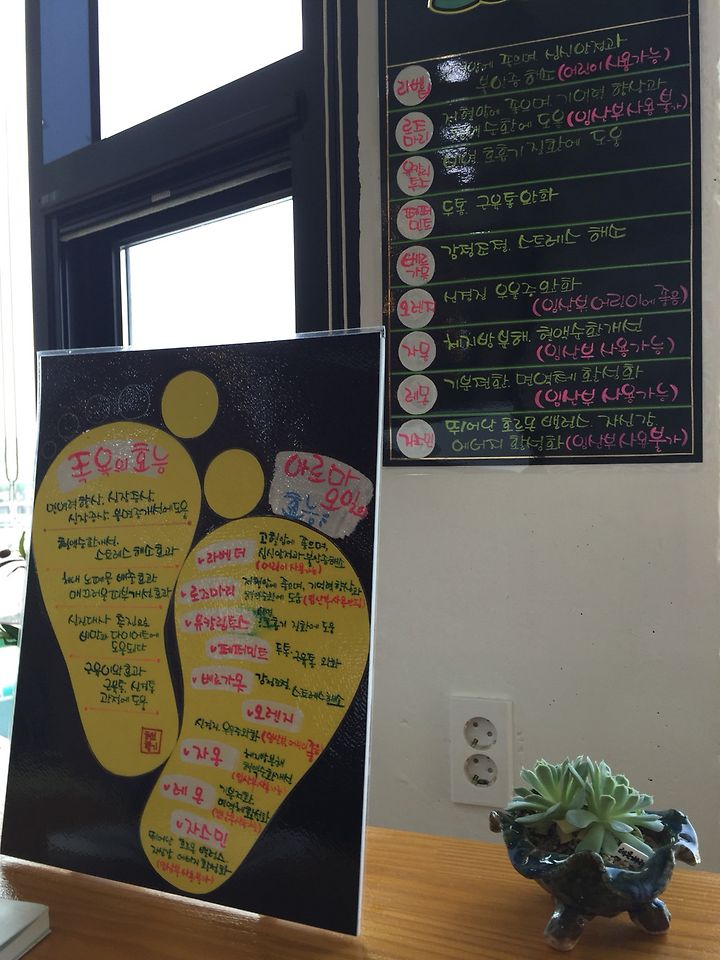 족욕의 효능
면역력 향상, 심장증상,
신장증상, 불면증개선에 도움
혈액순환개선,
스트레스 해소효과
체내 노폐물 배출효과
매끄러운 피부개선효과
신진대사 촉진으로
비만과 다이어트에
도움되다
근육이완효과
근육통, 신경통
관절에 도움
아로마
오일의
효능
라벤더
고혈압에 좋으며,
심신안정과 부인증해소
(어린이 사용가능)
로즈마리
저혈압에 좋으며, 기억력 향상과
혈액순환에 도움
유칼립투스
비염
호흡기 질환에 도움
페퍼민트
두통, 근육통 완화
베르가못
감정조절, 스트레스해소
오렌지
신경질, 우울증완화 (임산부, 어린이 좋음)
자몽
체지방분해
혈액순환개선
(임산부 사용가능)
레몬
기분전환,
면역체활성화
자스민
뛰어난 호르몬 밸런스,
자신감, 에너지 활성화
(임산부사용불가)
고혈압에 좋으며 심신안정과
라벤더 부인증 해소 (어린이 사용가능)
로즈마리 저혈압에 좋으며, 기억력 향상과
혈액순환에 도움 (임산부사용불가)
유칼립투스 비염 호흡기 질환에 도움
페퍼민트 두통, 근육통완화
베르가못 감정조절, 스트레스 해소
오렌지 신경질 우울증완화
(임산부, 어린이에 좋음)
자몽 체지방분해, 혈액순환개선
(임산부 사용가능)
레몬 기분전환, 면역체 활성화
(임산부 사용가능)
자스민 뛰어난 호르몬 밸런스, 자신감,
에너지 활성화 (임산부사용불가)